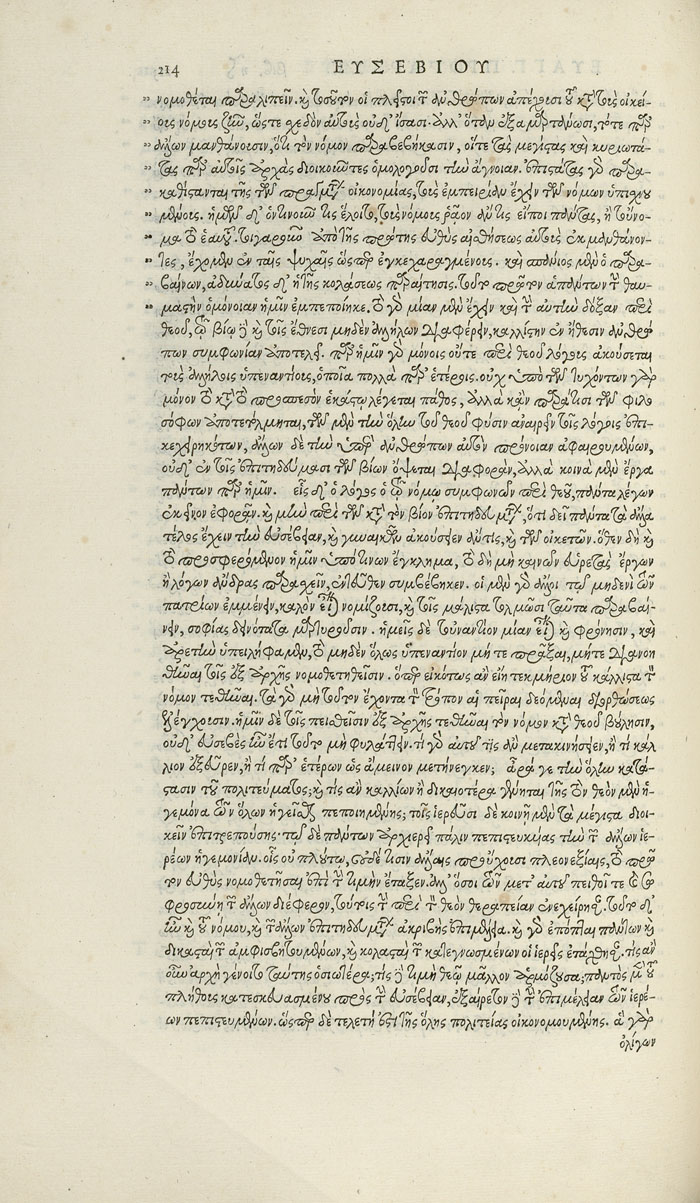 214 ΕΥΣΕΒΙΟΥ
" νομοθέται παραλιπεῖν. καὶ τοσοῦτον οἱ πλεῖστοι τῶν ἀνθρώπων ἀπέχουσι τοῦ κατὰ τοὺς οἰκεί-
" ους νόμους ζῆν, ὥστε σχεδὸν αὐτοὺς οὐδ' ἴσασι. ἀλλ' ὅταν ἐξαμάρτωσι, τότε παρ'
" ἄλλων μανθάνουσιν, ὅτι τὸν νόμον παραβεβήκασιν, οἵτε τὰς μεγίστας καὶ κυριωτά-
" τας παρ' αὐτοῖς ἀρχὰς διοικοῦντες ὁμολογοῦσι τὴν ἄγνοιαν. ἐπιστάτας γὰρ παρα-
" καθίστανται τῆς τῶν πραγμάτων οἰκονομίας, τοὺς ἐμπειρίαν ἔχειν τῶν νόμων ὑπισχνου
" μένους. ἡμῶν δ' ὁντινοῦν τις ἕλοιτο, τοὺς νόμους ῥᾷον ἄν τις εἴποι πάντας, ἢ τοὔνο-
" μα τὸ ἑαυτοῦ. τοιγαροῦν ἀπὸ τῆς πρώτης εὐθὺς αἰσθήσεως αὐτοὺς ἐκμανθάνον-
" τες, ἔχομεν ἐν ταῖς ψυχαῖς ὥσπερ ἐγκεχαραγμένους. καὶ σπάνιος μὲν ὁ παρα-
" βαίνων, ἀδύνατος δ' ἡ τῆς κολάσεως παραίτησις. τοῦτο πρῶτον ἁπάντων τὴν θαυ-
" μαστὴν ὁμόνοιαν ἡμῖν ἐμπεποίηκε. τὸ γὰρ μίαν μὲν ἔχειν καὶ τὴν αὐτὴν δόξαν περὶ
θεοῦ, τῷ βίῳ δὲ καὶ τοῖς ἔθεσι μηδὲν ἀλλήλων διαφέρειν, καλλίστην ἐν ἤθεσιν ἀνθρώ
πων συμφωνίαν ἀποτελεῖ. παρ' ἡμῖν γὰρ μόνοις οὔτε περὶ θεοῦ λόγους ἀκούσεται
τις ἀλλήλοις ὑπεναντίους, ὁποῖα πολλὰ παρ' ἑτέροις. οὐχ ὑπὸ τῶν τυχόντων γὰρ
μόνον τὸ κατὰ τὸ προσπεσὸν ἑκάστῳ λέγεται πάθος, ἀλλὰ κἂν παρά τισι τῶν φιλο
σόφων ἀποτετόλμηται, τῶν μὲν τὴν ὅλην τοῦ θεοῦ φύσιν ἀναιρεῖν τοῖς λόγοις ἐπι-
κεχειρηκότων, ἄλλων δὲ τὴν ὑπὲρ ἀνθρώπων αὐτὸν πρόνοιαν ἀφαιρουμένων,
οὐδ' ἐν τοῖς ἐπιτηδεύμασι τῶν βίων ὄψεται διαφοράν, ἀλλὰ κοινὰ μὲν ἔργα
πάντων παρ' ἡμῖν. εἷς δ' ὁ λόγος ὁ τῷ νόμῳ συμφωνῶν περὶ θεοῦ, πάντα λέγων
ἐκεῖνον ἐφορᾶν. καὶ μὴν περὶ τῶν κατὰ τὸν βίον ἐπιτηδευμάτων, ὅτι δεῖ πάντα τἆλλα
τέλος ἔχειν τὴν εὐσέβειαν, καὶ γυναικῶν ἀκούσειεν ἄν τις, καὶ τῶν οἰκετῶν. ὅθεν δὴ καὶ
τὸ προσφερόμενον ἡμῖν ὑπό τινων ἔγκλημα, τὸ δὴ μὴ καινῶν εὑρετὰς ἔργων
ἢ λόγων ἄνδρας παρασχεῖν, ἐντεῦθεν συμβέβηκεν. οἱ μὲν γὰρ ἄλλοι τῷ μηδενὶ τῶν
πατρίων ἐμμένειν, καλὸν εἶναι νομίζουσι, καὶ τοῖς μάλιστα τολμῶσι ταῦτα παραβαί-
νειν, σοφίας δεινότατα μαρτυροῦσιν. ἡμεῖς δὲ τοὐναντίον μίαν εἶναι καὶ φρόνησιν, καὶ
ἀρετὴν ὑπειλήφαμεν, τὸ μηδὲν ὅλως ὑπεναντίον μήτε πρᾶξαι, μήτε διανοη
θῆναι τοῖς ἐξ ἀρχῆς νομοθετηθεῖσιν. ὅπερ εἰκότως ἂν εἴη τεκμήριον τοῦ κάλλιστα τὸν
νόμον τεθῆναι. τὰ γὰρ μὴ τοῦτον ἔχοντα τὸν τρόπον αἱ πεῖραι δεόμενα διορθώσεως
ἐξελέγχουσιν. ἡμῖν δὲ τοῖς πεισθεῖσιν ἐξ ἀρχῆς τεθῆναι τὸν νόμον κατὰ θεοῦ βούλησιν,
οὐδ' εὐσεβὲς ἦν ἔτι τοῦτο μὴ φυλάττειν. τί γὰρ αὐτοῦ τις ἂν μετακινήσειεν, ἢ τί κάλ
λιον ἐξεῦρεν, ἢ τί παρ' ἑτέρων ὡς ἄμεινον μετήνεγκεν; ἆρά γε τὴν ὅλην κατά-
στασιν τοῦ πολιτεύματος; καὶ τίς ἂν καλλίων ἢ δικαιοτέρα γένηται τῆς τὸν θεὸν μὲν ἡ-
γεμόνα τῶν ὅλων ἡγεῖσθαι πεποιημένης; τοῖς ἱερεῦσι δὲ κοινῇ μὲν τὰ μέγιστα διοι-
κεῖν ἐπιτρεπούσης· τῷ δὲ πάντων ἀρχιερεῖ πάλιν πεπιστευκυίας τὴν τῶν ἄλλων ἱε-
ρέων ἡγεμονίαν. οὓς οὐ πλούτῳ, οὐδέ τισιν ἄλλαις προὔχουσι πλεονεξίαις, τὸ πρῶ
τον εὐθὺς νομοθετήσας ἐπὶ τὴν τιμὴν ἔταξεν. ἀλλ' ὅσοι τῶν μετ' αὐτοῦ πειθοῖ τε καὶ σω
φροσύνῃ τῶν ἄλλων διέφερον, τούτοις τὴν περὶ τὸν θεὸν θεραπείαν ἐνεχείρησε. τοῦτο δ'
ἦν καὶ τοῦ νόμου, καὶ τῶν ἄλλων ἐπιτηδευμάτων ἀκριβὴς ἐπιμέλεια. καὶ γὰρ ἐπόπται πάντων καὶ
δικασταὶ τῶν ἀμφισβητουμένων, καὶ κολασταὶ τῶν κατεγνωσμένων οἱ ἱερεῖς ἐτάχθησαν. τίς ἂν
οὖν ἀρχὴ γένοιτο ταύτης ὁσιωτέρα; τίς δὲ τιμὴ θεῷ μᾶλλον ἁρμόζουσα; παντὸς μὲν τοῦ
πλήθους κατεσκευασμένου πρὸς τὴν εὐσέβειαν, ἐξαίρετον δὲ τὴν ἐπιμέλειαν τῶν ἱερέ-
ων πεπιστευμένων. ὥσπερ δὲ τελετή ἐστι τῆς ὅλης πολιτείας οἰκονομουμένης. ἃ γὰρ
ὀλίγων